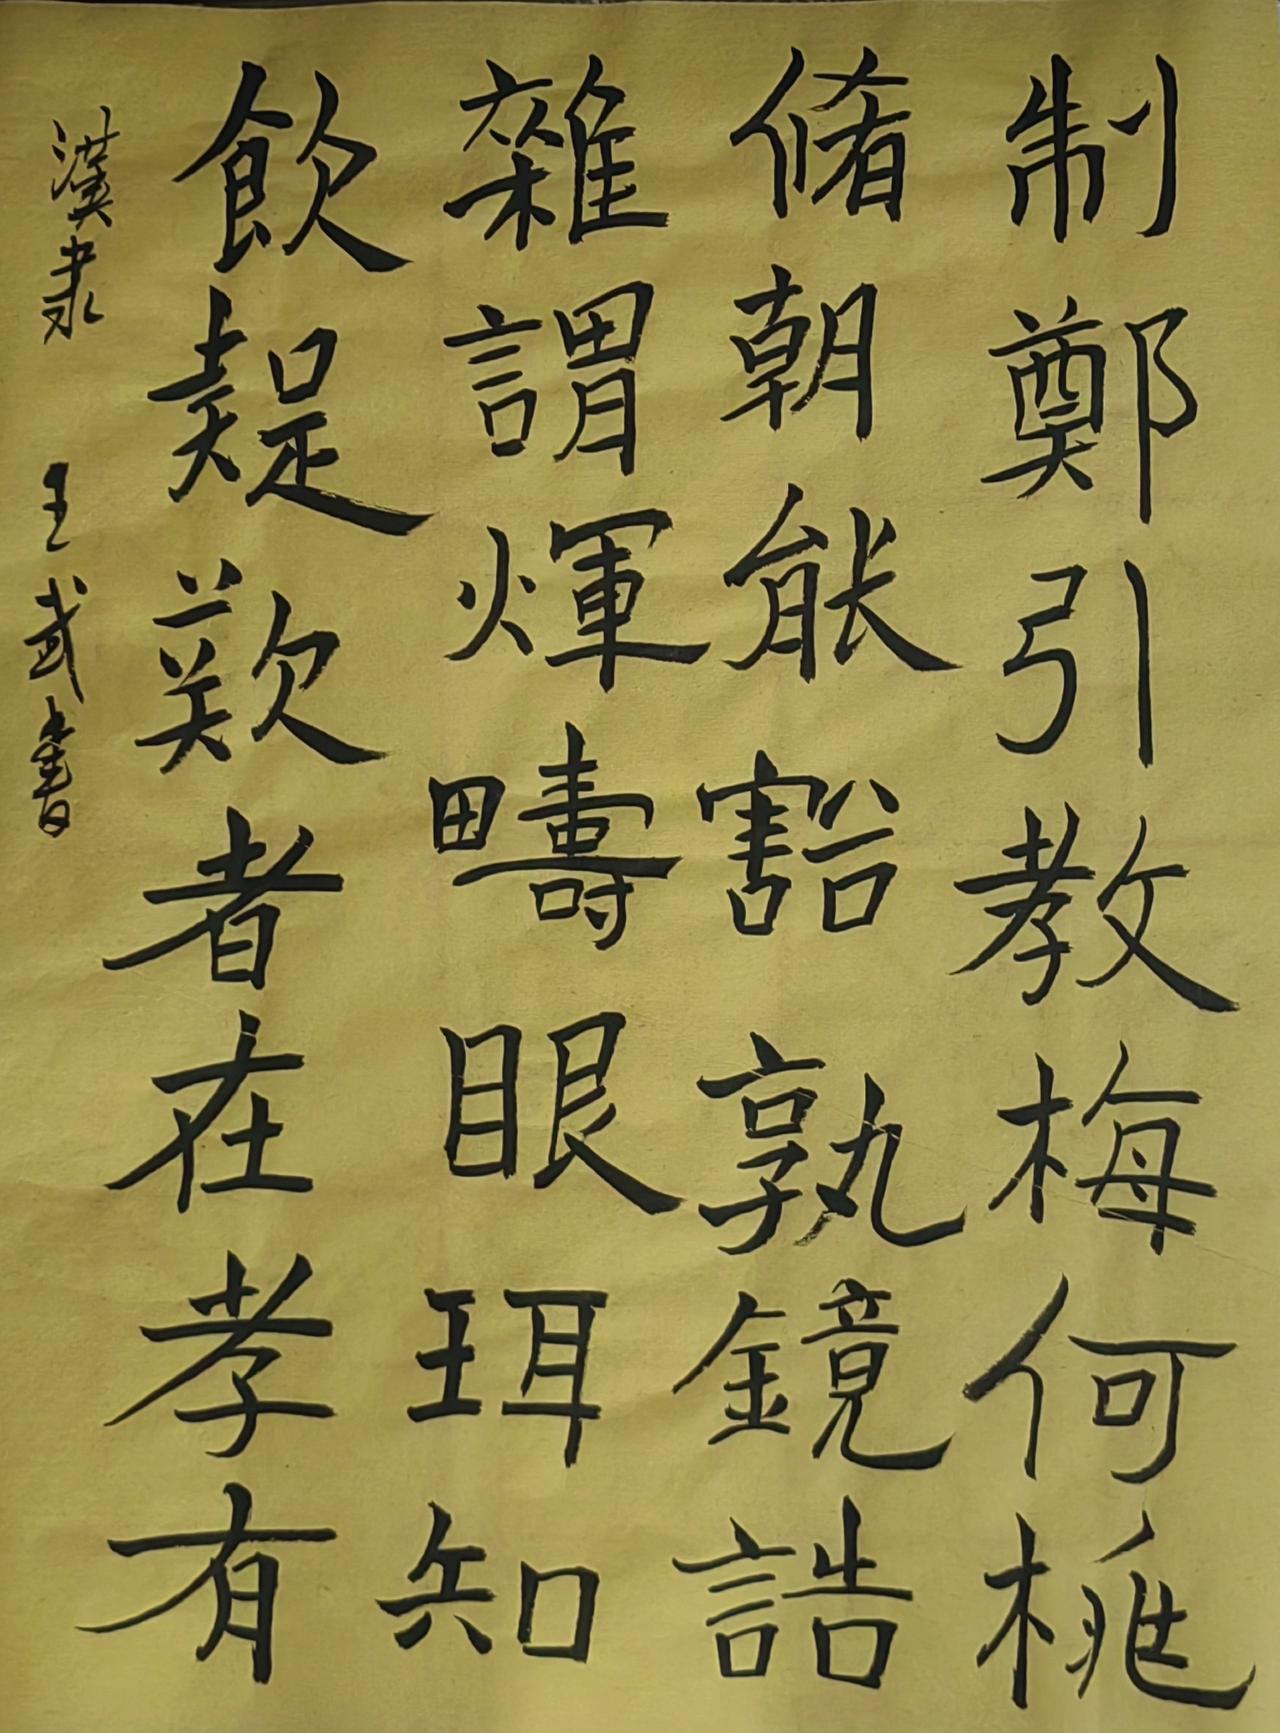 制鄭引教梅何桃
朝能豁孰鏡誥
雜謂煇疇眼珥知
飲歎者在孝有
漢隶 王武書